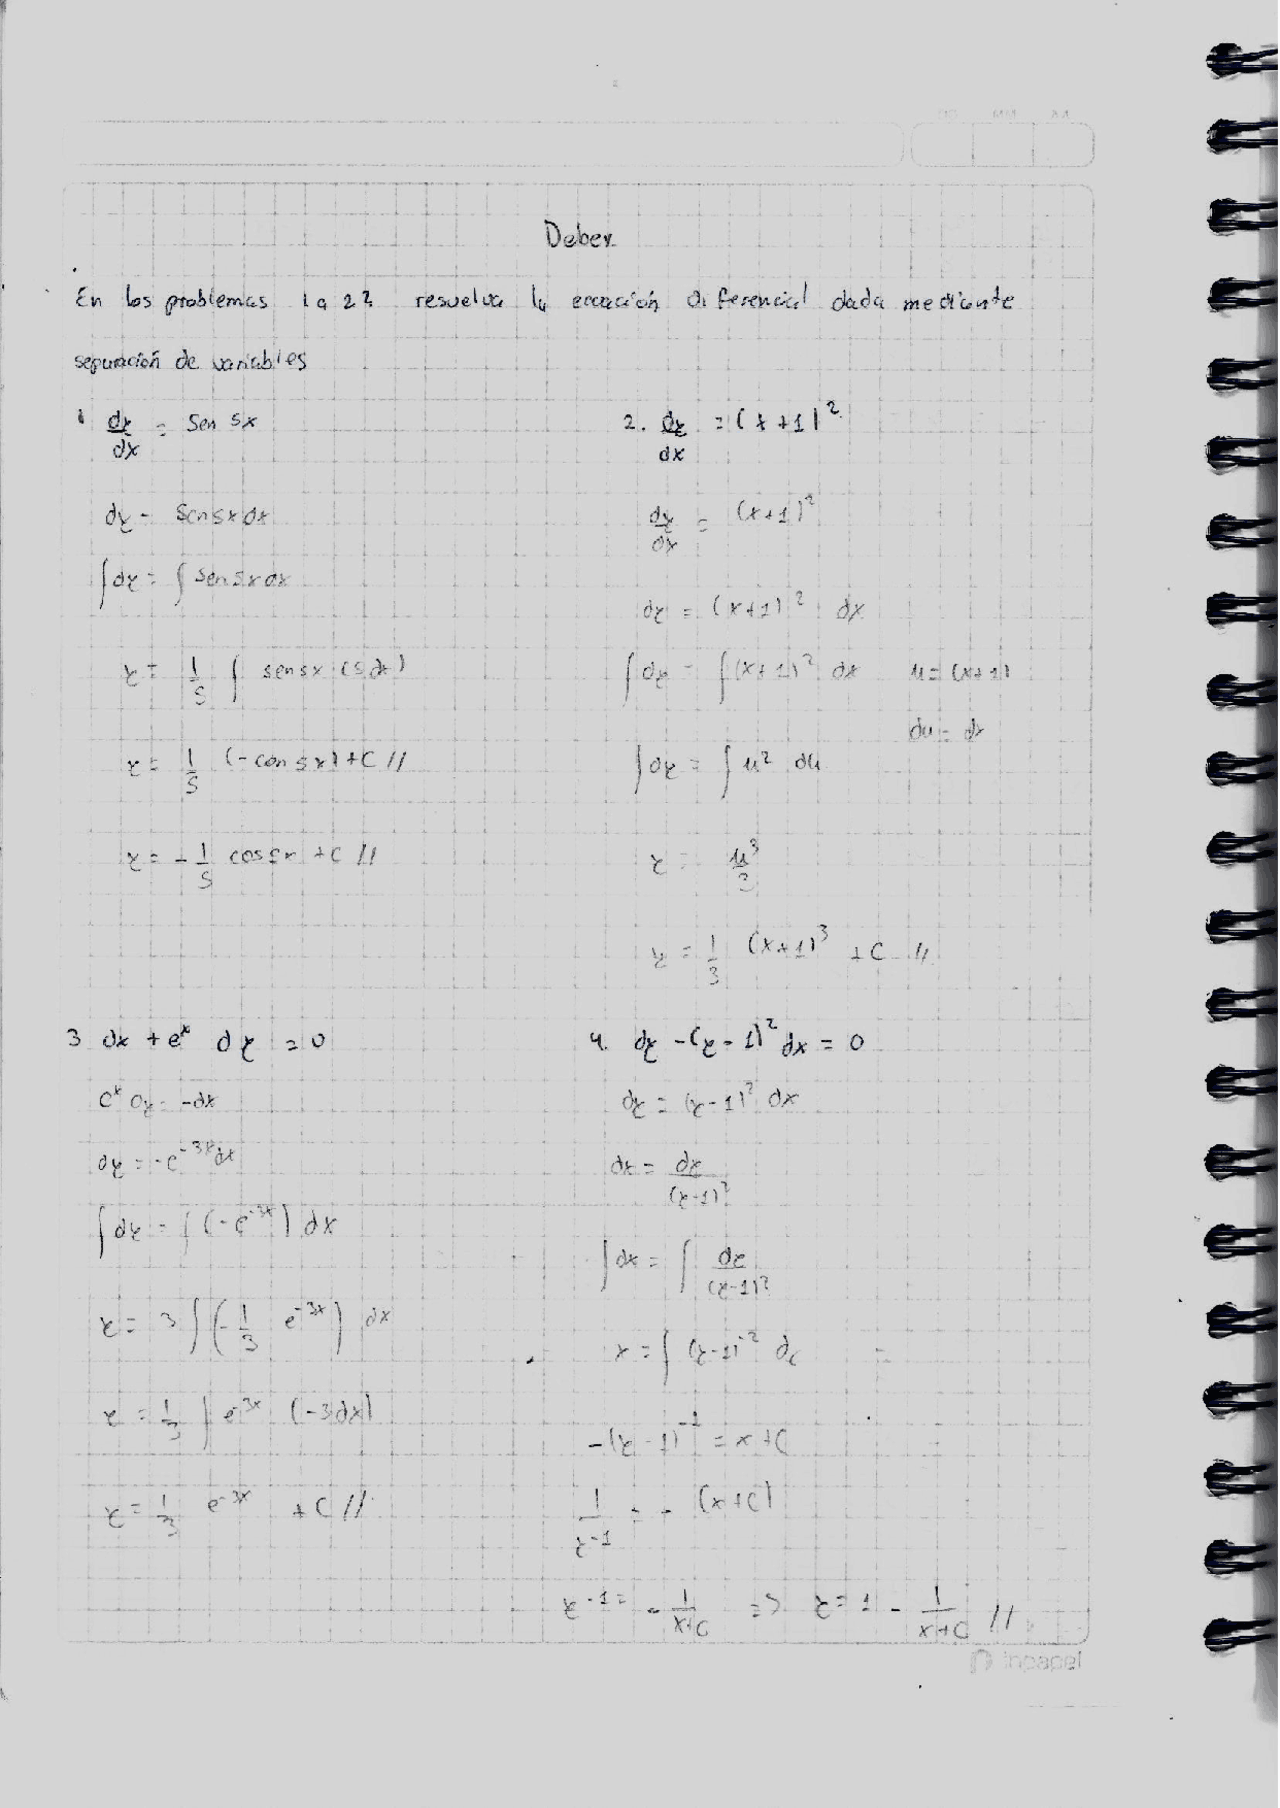 Deber
En los problemas 1 a 22 resuelva la ecuación diferencial dada mediante
separación de variables
1 dy/dx = Sen 5x
dy = Sen5xdx
∫dy = ∫sen5xdx
y = 1/5 ∫ sen5x (5dx)
y = 1/5 (-con5x)+C //
y = -1/5 cos5x +C //
2. dy/dx = (x+1)²
dy/dx = (x+1)²
dy = (x+1)² dx
∫dy = ∫(x+1)² dx u=(x+1)
du=dx
∫dy = ∫u² du
y = u³/3
y = 1/3 (x+1)³ +C //
3 dx + eˣ dy = 0
eˣ dy = -dx
dy = -e⁻³ˣdx
∫dy = ∫(-e⁻³ˣ) dx
y = 3∫(-1/3 e⁻³ˣ) dx
y = 1/3 ∫e⁻³ˣ (-3dx)
y = 1/3 e⁻³ˣ +C //
4. dy -(y-1)²dx = 0
dy = (y-1)² dx
dx = dy/(y-1)²
∫dx = ∫ dy/(y-1)²
x = ∫(y-1)⁻² dy
-(y-1)⁻¹ = x+C
1/y-1 = -(x+C)
y-1 = -1/x+C => y = 1 - 1/x+C //
inpapel